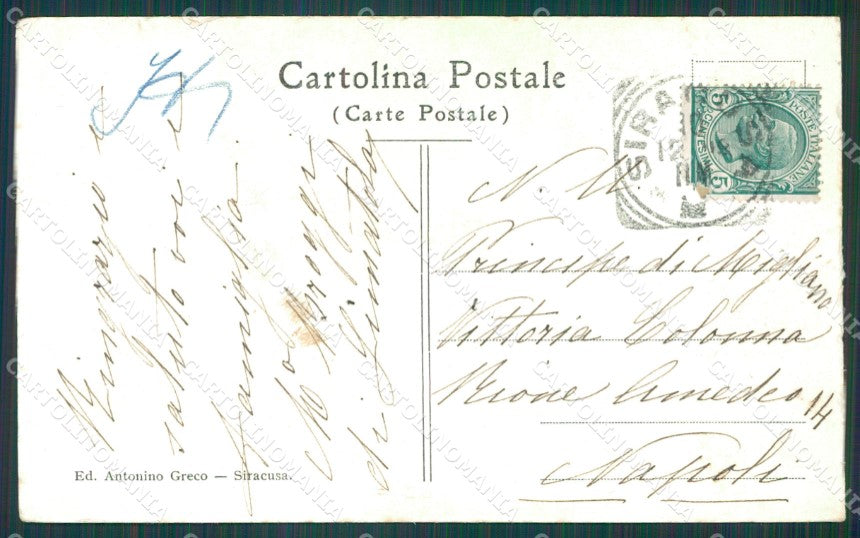 Cartolina Postale
(Carte Postale)
Ringrazio e
saluto voi e
famiglia.
di
N. H.
Principe di Migliano
Vittoria Colonna
Rione Amedeo 14
Napoli
SIRA
POSTE ITALIANE
CENTESIMI
5
5
Ed. Antonino Greco — Siracusa.
CARTOLINOMANIA